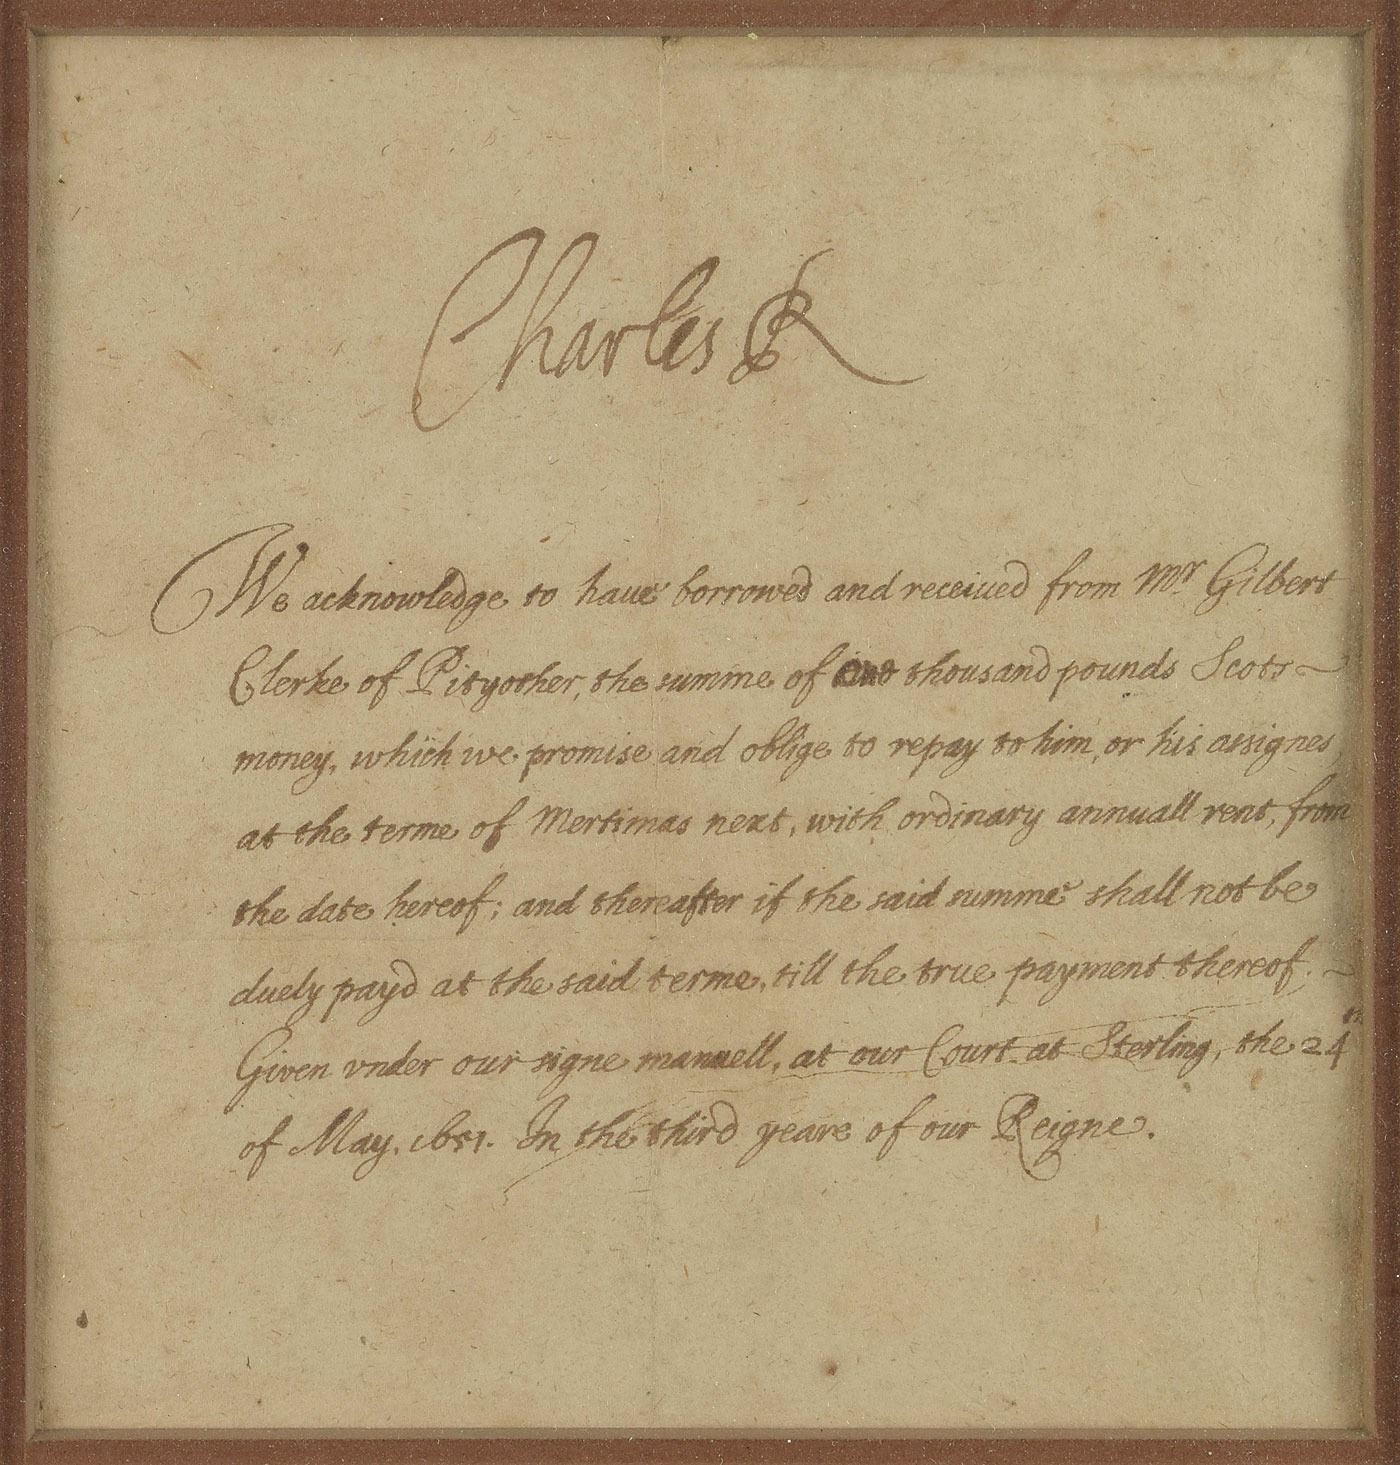 Charles R
We acknowledge to haue borrowed and receiued from Mr. Gilbert
Clerke of Pityother, the summe of one thousand pounds Scots
money, which we promise and oblige to repay to him, or his assignes,
at the terme of Mertimas next, with ordinary annuall rent, from
the date hereof; and thereafter if the said summe shall not be
duely payd at the said terme, till the true payment thereof.
Given vnder our signe manuell, at our Court at Sterling, the 24th
of May. 1651. In the third yeare of our Reigne.